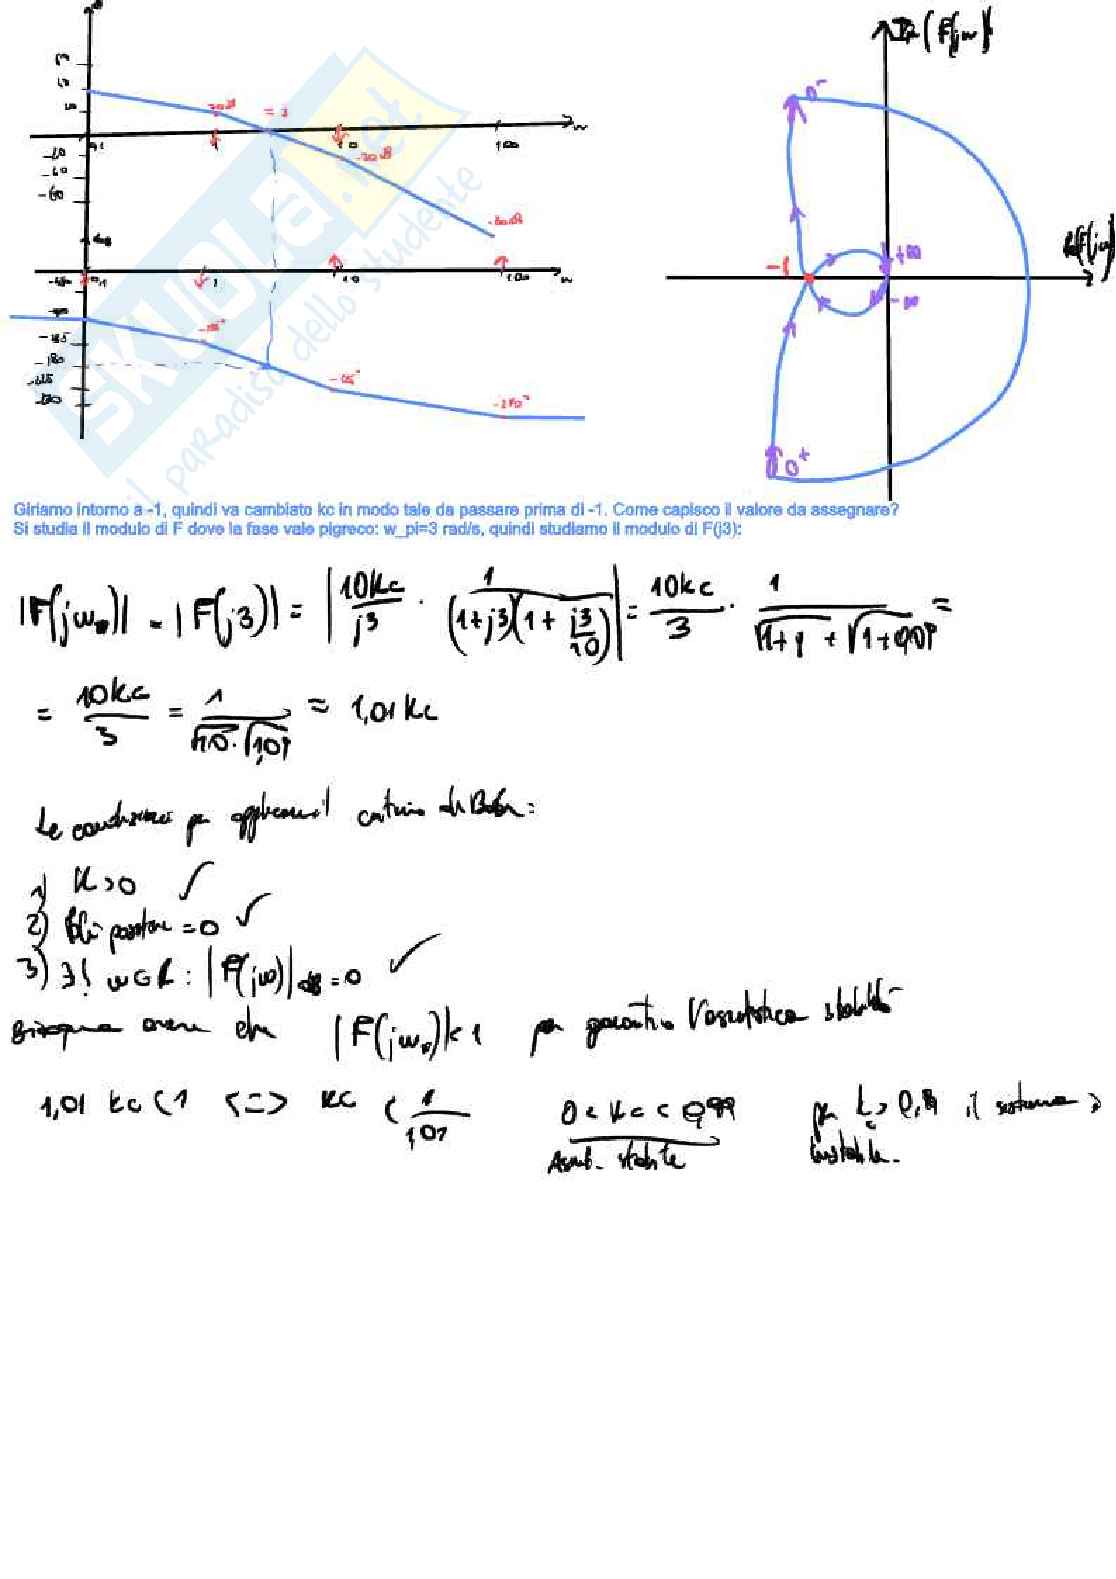 Im(F(jw))
Re(F(jw))
0-
-1
+∞
-∞
0+
= 3
1
10
100
w
-180
-270°
SKUOLA.net
il paradiso dello studente
Giriamo intorno a -1, quindi va cambiato kc in modo tale da passare prima di -1. Come capisco il valore da assegnare?
Si studia il modulo di F dove la fase vale pigreco: w_pi=3 rad/s, quindi studiamo il modulo di F(j3):
|F(jwπ)| = |F(j3)| = |10kc/j3 · 1/((1+j3)(1+j3/10))| = 10kc/3 · 1/(√1+9 + √1+0,09) =
= 10kc/3 = 1/(√10·√1,09) = 1,01 kc
Le condizioni per applicare il criterio di Bode:
1) K>0 ✓
2) Poli positivi = 0 ✓
3) ∃! w∈R : |F(jw)|dB = 0 ✓
Bisogna avere che |F(jwπ)|<1 per garantire l'asintotica stabilità
1,01 kc < 1 <=> kc < 1/1,01 0 < kc < 0,99 per kc > 0,99 il sistema è
Asint. stabile instabile.